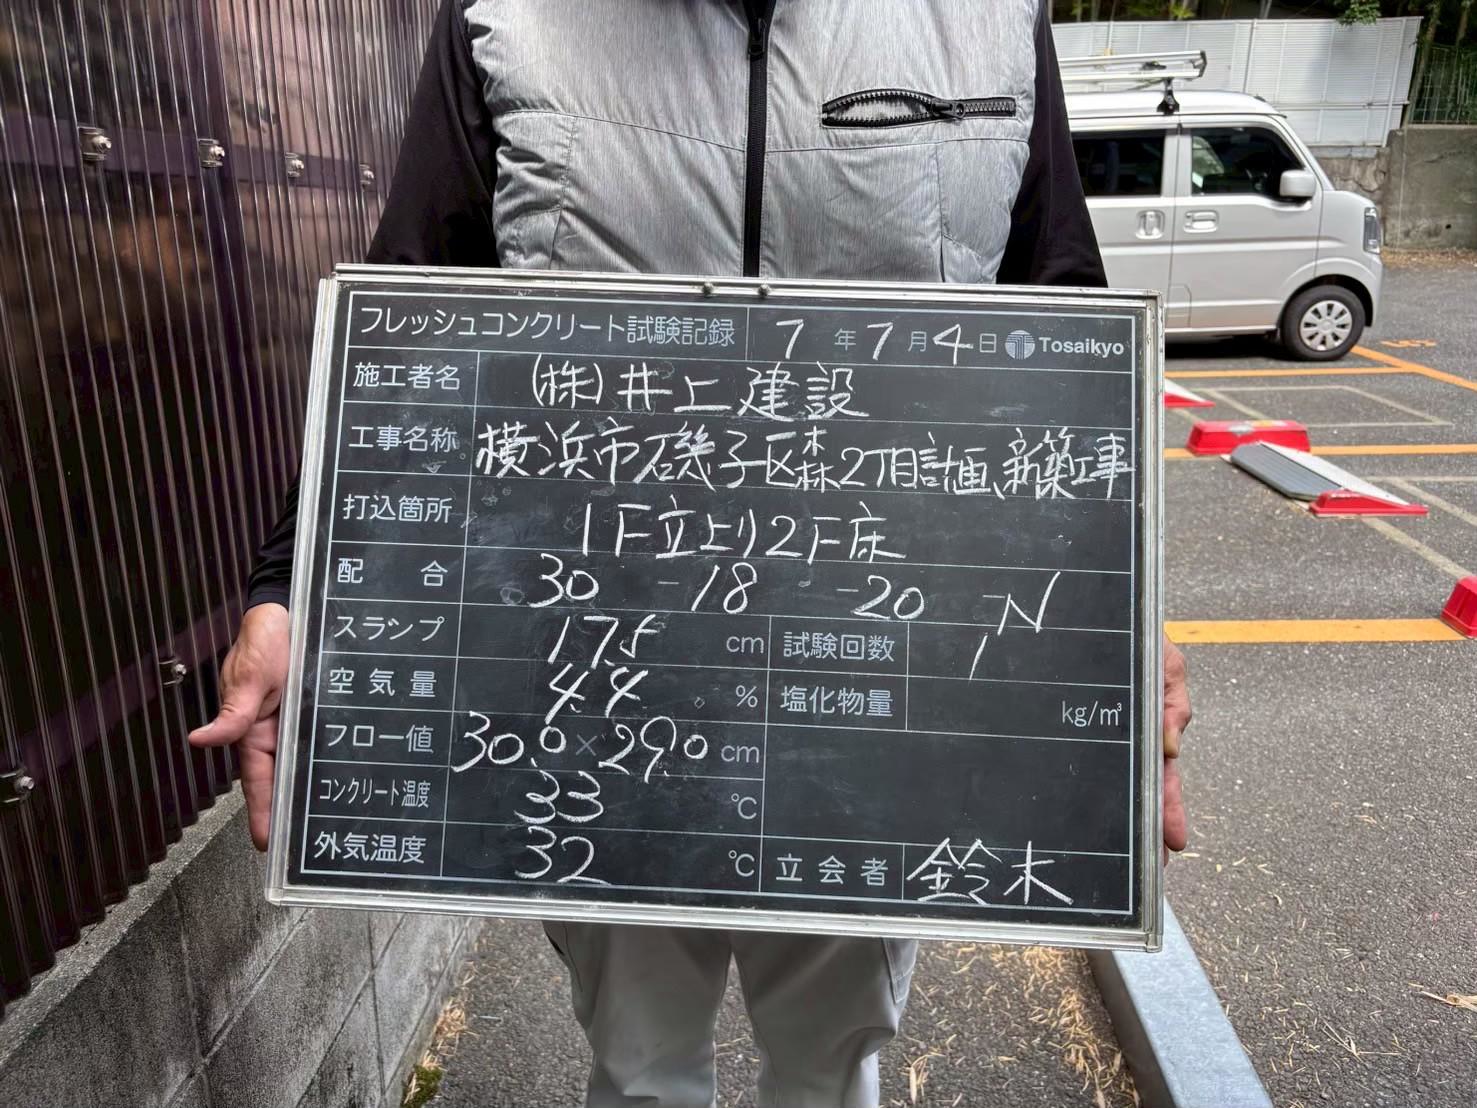 フレッシュコンクリート試験記録 7年7月4日 Tosaikyo
施工者名 (株)井上建設
工事名称 横浜市磯子区森2丁目計画新築工事
打込箇所 1F立上り2F床
配合 30 -18 -20 -N
スランプ 17.5 cm 試験回数 1
空気量 4.4 % 塩化物量 kg/m³
フロー値 30.0×29.0 cm
コンクリート温度 33 ℃
外気温度 32 ℃ 立会者 鈴木